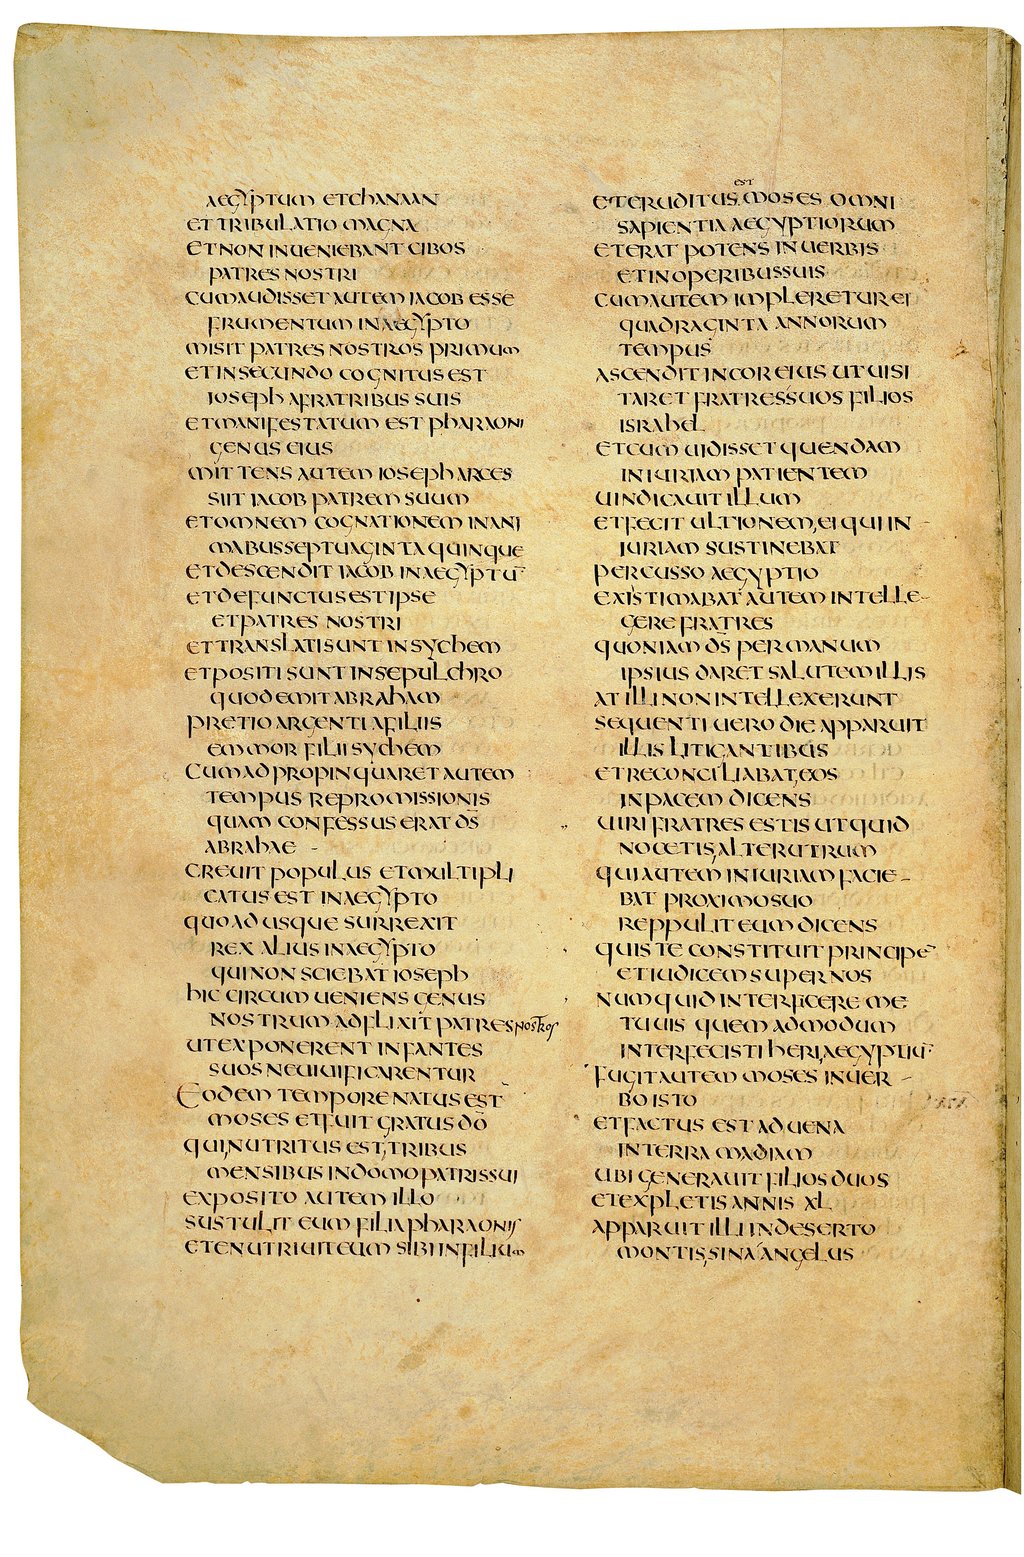 AEGYPTUM ETCHANAAN
ET TRIBULATIO MAGNA
ET NON INUENIEBANT CIBOS
PATRES NOSTRI
CUM AUDISSET AUTEM IACOB ESSE
FRUMENTUM IN AEGYPTO
MISIT PATRES NOSTROS PRIMUM
ET IN SECUNDO COGNITUS EST
IOSEPH A FRATRIBUS SUIS
ET MANIFESTATUM EST PHARAONI
GENUS EIUS
MITTENS AUTEM IOSEPH ARCES
SIIT IACOB PATREM SUUM
ET OMNEM COGNATIONEM IN ANI
MABUS SEPTUAGINTA QUINQUE
ET DESCENDIT IACOB IN AEGYPTŪ
ET DEFUNCTUS EST IPSE
ET PATRES NOSTRI
ET TRANSLATI SUNT IN SYCHEM
ET POSITI SUNT IN SEPULCHRO
QUOD EMIT ABRAHAM
PRETIO ARGENTI A FILIIS
EMMOR FILII SYCHEM
CUM ADPROPINQUARET AUTEM
TEMPUS REPROMISSIONIS
QUAM CONFESSUS ERAT D̄S
ABRAHAE
CREUIT POPULUS ET MULTIPLI
CATUS EST IN AEGYPTO
QUOADUSQUE SURREXIT
REX ALIUS IN AEGYPTO
QUI NON SCIEBAT IOSEPH
HIC CIRCUMUENIENS GENUS
NOSTRUM ADFLIXIT PATRES NOSTROS
UT EXPONERENT INFANTES
SUOS NE UIUIFICARENTUR
EODEM TEMPORE NATUS EST
MOSES ET FUIT GRATUS D̄O
QUI NUTRITUS EST TRIBUS
MENSIBUS IN DOMO PATRIS SUI
EXPOSITO AUTEM ILLO
SUSTULIT EUM FILIA PHARAONIS
ET ENUTRIUIT EUM SIBI IN FILIUM
EST
ET ERUDITUS MOSES OMNI
SAPIENTIA AEGYPTIORUM
ET ERAT POTENS IN UERBIS
ET IN OPERIBUS SUIS
CUM AUTEM IMPLERETUR EI
QUADRAGINTA ANNORUM
TEMPUS
ASCENDIT IN COR EIUS UT UISI
TARET FRATRES SUOS FILIOS
ISRAHEL
ET CUM UIDISSET QUENDAM
INIURIAM PATIENTEM
UINDICAUIT ILLUM
ET FECIT ULTIONEM EI QUI IN
IURIAM SUSTINEBAT
PERCUSSO AEGYPTIO
EXISTIMABAT AUTEM INTELLE-
GERE FRATRES
QUONIAM D̄S PER MANUM
IPSIUS DARET SALUTEM ILLIS
AT ILLI NON INTELLEXERUNT
SEQUENTI UERO DIE APPARUIT
ILLIS LITIGANTIBUS
ET RECONCILIABAT EOS
IN PACEM DICENS
UIRI FRATRES ESTIS UT QUID
NOCETIS ALTERUTRUM
QUI AUTEM INIURIAM FACIE-
BAT PROXIMO SUO
REPPULIT EUM DICENS
QUIS TE CONSTITUIT PRINCIPĒ
ET IUDICEM SUPER NOS
NUMQUID INTERFICERE ME
TU UIS QUEMADMODUM
INTERFECISTI HERI AEGYPTIŪ
FUGIT AUTEM MOSES IN UER
BO ISTO
ET FACTUS EST ADUENA
IN TERRA MADIAM
UBI GENERAUIT FILIOS DUOS
ET EXPLETIS ANNIS XL
APPARUIT ILLI IN DESERTO
MONTIS SINA ANGELUS